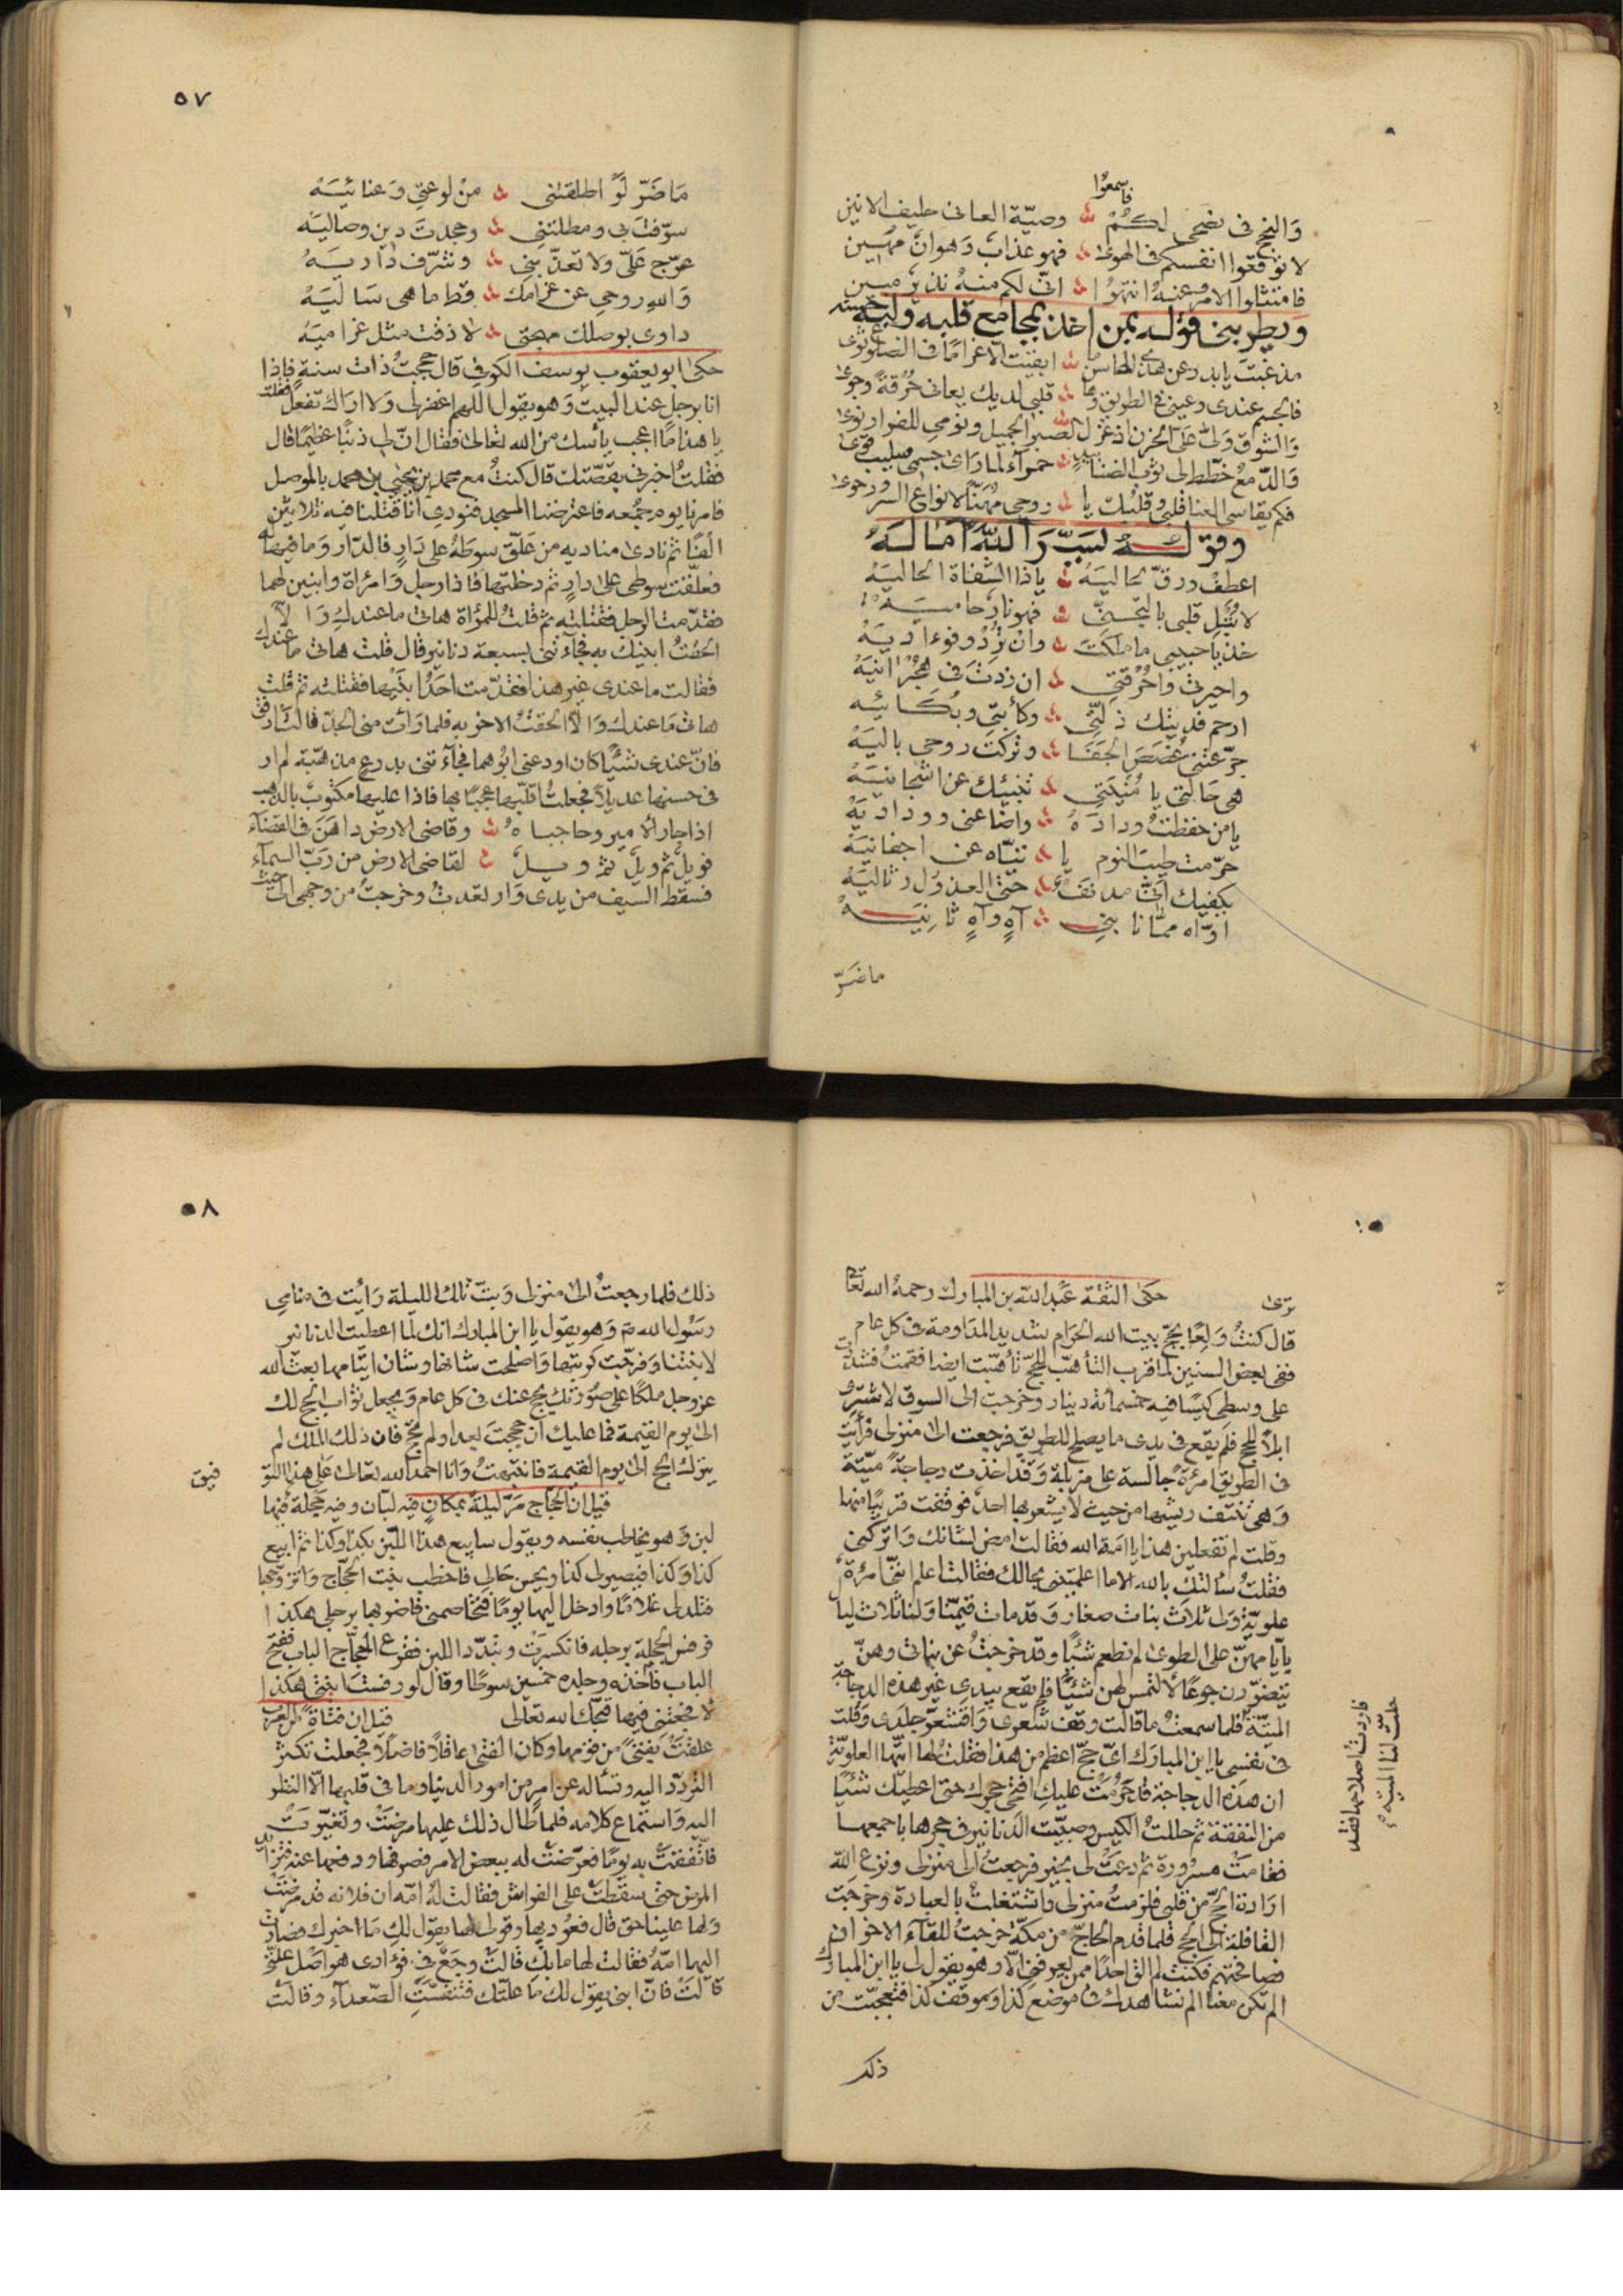 فاسمعوا
والنجح في نصحي لكم وصية العاني حليف الانين
لا توقعوا انفسكم في الهوى فهو عذاب وهوان مهين
فامتثلوا الامر وعنه انتهوا اني لكم منه نذير مبين
ويطربني قوله بمن اخذ بمجامع قلبه ولبه
مذ غبت يا بدر عن هذي المحاسن ما ابقيت الا غراما في الضلوع ثوى
فالجسم عندي وعيني في الطريق وما قلبي لديك يعاني حرقة وجوى
والشوق ولى علي الحزن اذ عزل الصبر الجميل ونومي للفرار نوى
والدمع خطط لي ثوب الضنا حمراء لما راى جسمي سليب قوى
فكم يقاسي العنا قلبي وقلبك يا روحي مهنأ لانواع السرور حوى
وقوله يسر الله آماله
اعطف ورق لحاليه ياذا الشفاة الحاليه
لا تبل قلبي بالتجني فهو نار حاميه
خذ يا حبيبي ما ملكت وان ترد وفؤاديه
واحيرتي واحرقتي ان زدت في هجرانيه
ارحم فديتك ذلتي وكأبتي وبكائيه
جرعتني غصص الجفا وتركت روحي باليه
هي حالتي يا منيتي تنبئك عن اشجانيه
يا من حفظت وداده واضاع عني وداديه
حرمت طيب النوم يا تياه عن اجفانيه
يكفيك اني مدنف حتى العذول رثاليه
اواه مما نابني آه وآه ثانيه
ماضر
٥٧
ما ضر لو اطلقتني من لوعتي وعنائيه
سوفت بي ومطلتني وجحدت دين وصاليه
عرج علي ولا تعد بني وشرف داريه
والله روحي عن غرامك قط ما هي ساليه
داوي بوصلك مهجتي لا ذقت مثل غراميه
حكى ابو يعقوب يوسف الكوفي قال حججت ذات سنة فاذا
انا برجل عند البيت وهو يقول اللهم اغفر لي ولا اراك تفعل فقلت
يا هذا ما اعجب يأسك من الله تعالى فقال ان لي ذنبا عظيما قال
فقلت اخبرني بقصتك قال كنت مع محمد بن يحيى بن محمد بالموصل
فامرنا يوم جمعه فاعترضنا المسجد فنودي اننا قتلنا فيه ثلاثين
الفا ثم نادى مناديه من علق سوطه على دار فالدار وما فيها له
فعلقت سوطي على دار ثم دخلتها فاذا رجل وامرأة وابنين لهما
فقدمت الرجل فقتلته ثم قلت للمرأة هاتي ما عندك والا
الحقت ابنيك به فجآءتني بسبعة دنانير قال قلت هاتي ما عندك
فقالت ما عندي غير هذا فقدمت احد ابنيها فقتلته ثم قلت
هاتي ما عندك والا الحقت الاخر به فلما رأت مني الجد قالت ارفق
فان عندي شيئا كان اودعني ابوهما فجآءتني بدرع مذهبة لم ار
في حسنها عديلا فجعلت اقلبها عجبا بها فاذا عليها مكتوب بالذهب
اذا جار الامير وحاجباه وقاضي الارض داهن في القضآء
فويل ثم ويل ثم ويل لقاضي الارض من رب السمآء
فسقط السيف من يدي وارتعدت وخرجت من وجهي الى حيث
ترى
حكى الثقة عبد الله بن المبارك رحمه الله تعا
قال كنت ولعا بحج بيت الله الحرام شديد المداومة في كل عام
ففي بعض السنين لما قرب التأهب للحج تأهبت ايضا فقمت فشددت
على وسطي كيسا فيه خمسمائة دينار وخرجت الى السوق لاشتري
ابلا للحج فلم يقع في يدي ما يصلح للطريق فرجعت الى منزلي فرأيت
في الطريق امرءة جالسة على مزبلة وقد اخذت دجاجة ميتة
وهي تنتف ريشها من حيث لا يشعر بها احد فوقفت قريبا منها
وقلت لم تفعلين هذا يا امة الله فقالت امض لشانك واتركني
فقلت سألتك بالله الا ما اعلمتني بحالك فقالت اعلم انني امرءة
علوية ولي ثلاث بنات صغار وقد مات قيمنا ولنا ثلاث ليال
بايامهن على الطوى لم نطعم شيئا وقد خرجت عن بناتي وهن
يتضورن جوعا لالتمس لهن شيئا فلم يقع بيدي غير هذه الدجاجة
الميتة فلما سمعت ما قالت وقف شعري واقشعر جلدي وقلت
في نفسي يا ابن المبارك اي حج اعظم من هذا فقلت لها ايتها العلوية
ان هذه الدجاجة قد حرمت عليك افتحي حجرك حتى اعطيك شيئا
من النفقة ثم حللت الكيس وصبيت الدنانير في حجرها باجمعها
فقامت مسرورة ثم دعت لي بخير فرجعت الى منزلي ونزع الله
ارادة الحج من قلبي فلزمت منزلي واشتغلت بالعبادة وخرجت
القافلة الى الحج فلما قدم الحاج من مكة خرجت للقآء الاخوان
فصافحتهم فكنت لم الق احدا ممن يعرفني الا وهو يقول لي يا ابن المبارك
الم تكن معنا الم نشاهدك في موضع كذا وموقف كذا فتعجبت من
فاردت اصلاحها فقد
حلت لنا الميته
ذلك
٥٨
ذلك فلما رجعت الى منزلي وبت تلك الليلة رأيت في منامي
رسول الله ص وهو يقول يا ابن المبارك انك لما اعطيت الدنانير
لابنتنا وفرجت كربتها واصلحت شانها وشان ايتامها بعث الله
عز وجل ملكا على صورتك يحج عنك في كل عام ويجعل ثواب الحج لك
الى يوم القيمة فما عليك ان حججت بعد او لم تحج فان ذلك الملك لم
يترك الحج الى يوم القيمة فانتبهت وانا احمد الله تعالى على هذا التو
فيق
قيل ان الحجاج مر ليلة بمكان فيه لبان وفيه عجلة فيها
لبن وهو يخاطب نفسه ويقول سابيع هذا اللبن بكذا وكذا ثم ابيع
كذا وكذا فيصير لي كذا ويحسن حالي فاخطب بنت الحجاج واتزوجها
فتلد لي غلاما وادخل اليها يوما فتخاصمني فاضربها برجلي هكذا
فرفس العجلة برجله فانكسرت وتبدد اللبن فقرع الحجاج الباب ففتح
الباب فأخذه وجلده خمسين سوطا وقال لو رفست ابنتي هكذا
لا فجعتني فيها قبحك الله تعالى قيل ان فتاة من العرب
علقت بفتى من قومها وكان الفتى عاقلا فاضلا فجعلت تكثر
التردد اليه وتسأله عن امر من امور الدنيا وما في قلبها الا النظر
اليه واستماع كلامه فلما طال ذلك عليها مرضت وتغيرت
فاتفقت به يوما فعرضت له ببعض الامر فصرفها ودفعها عنه فتزايد
المرض حتى سقطت على الفراش فقالت له امه ان فلانه قد مرضت
ولها علينا حق قال فعوديها وقولي لها يقول لك ما اخبرك فصارت
اليها امه فقالت لها ما بك قالت وجع في فؤادي هو اصل علتي
قالت فان ابني يقول لك ما علتك فتنفست الصعدآء وقالت